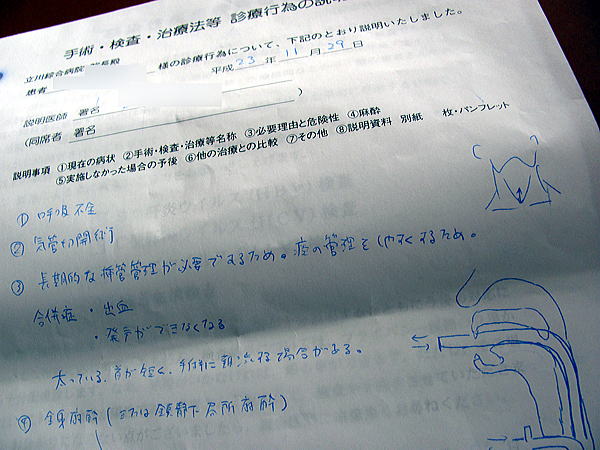 手術・検査・治療法等 診療行為の説
立川綜合病院 院長殿
患者 様の診療行為について、下記のとおり説明いたしました。
平成 23 年 11 月 29 日
説明医師 署名
(同席者 署名 )
説明事項 ①現在の病状 ②手術・検査・治療等名称 ③必要理由と危険性 ④麻酔
⑤実施しなかった場合の予後 ⑥他の治療との比較 ⑦その他 ⑧説明資料 別紙 枚・パンフレット
① 呼吸不全
② 気管切開術
③ 長期的な挿管管理が必要であるため。痰の管理をしやすくするため。
合併症 ・出血
・発声ができなくなる
太っている、首が短く、手術に難渋する場合がある。
④ 全身麻酔 (または鎮静下局所麻酔)